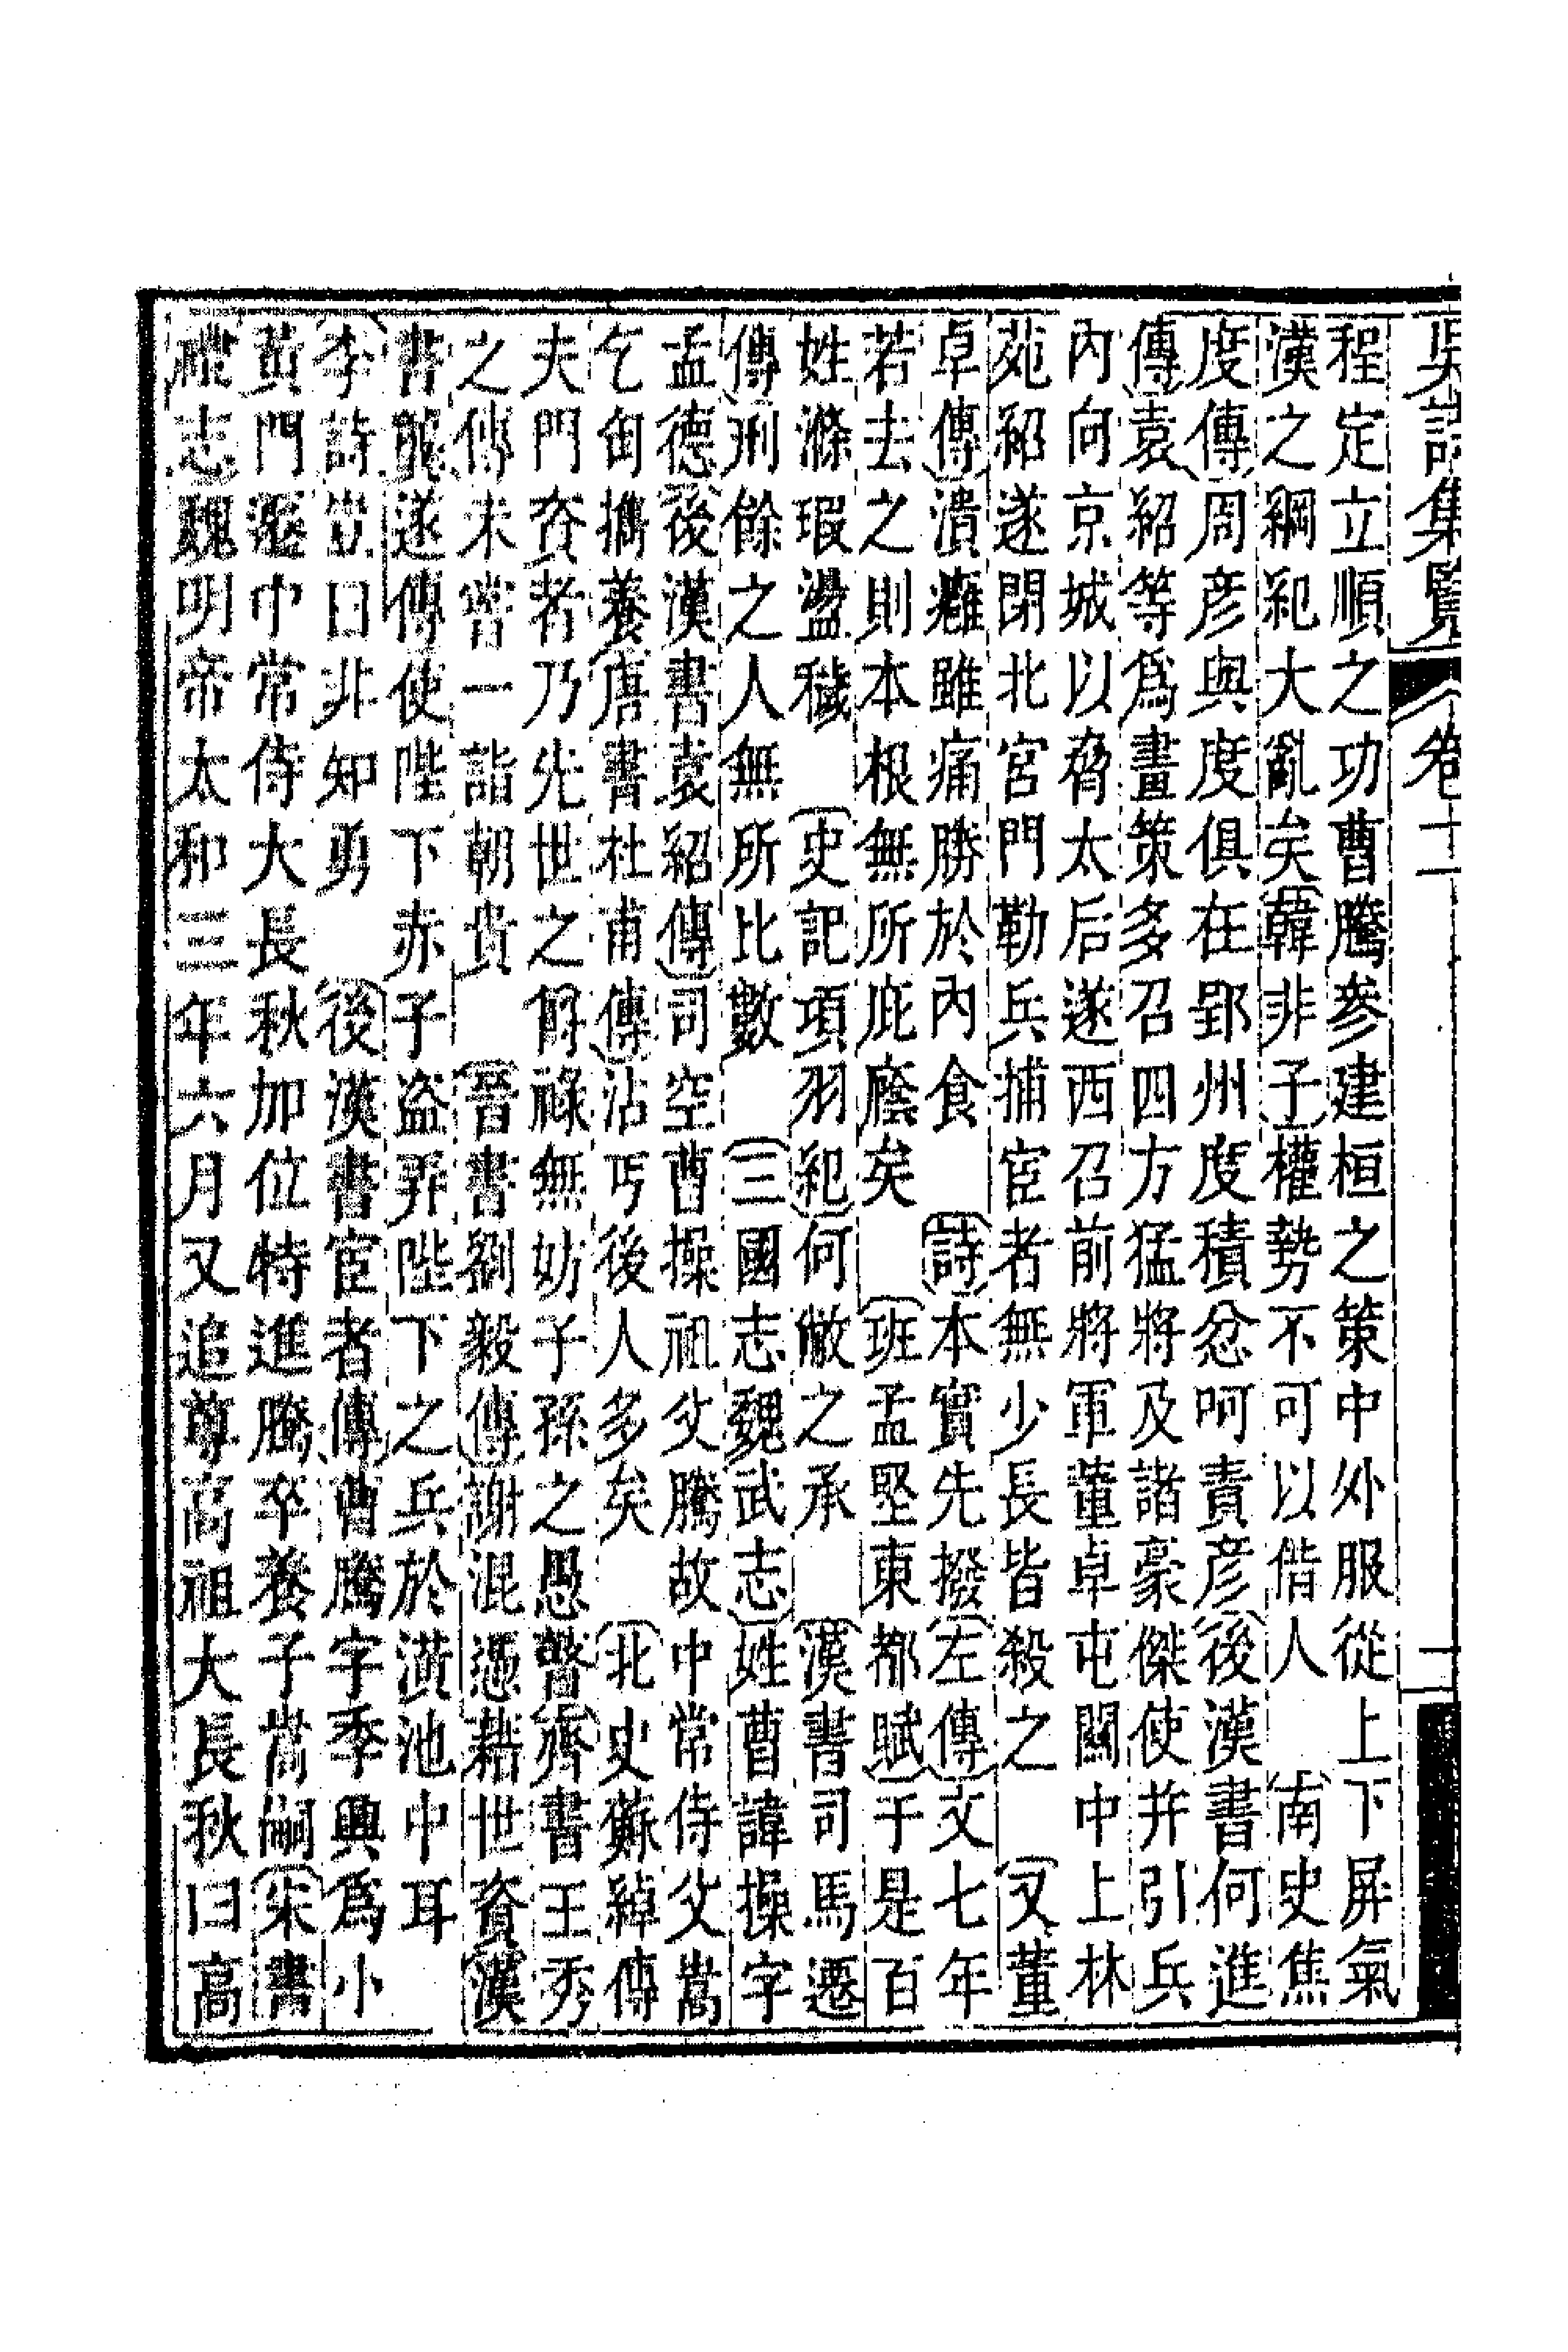 吳詩集覽 卷十一 二
程定立順之功曹騰參建桓之策中外服從上下屏氣
漢之綱紀大亂矣韓非子權勢不可以借人 南史焦
度傳周彥與度俱在郢州度積忿呵責彥後漢書何進
傳袁紹等爲畫策多召四方猛將及諸豪傑使并引兵
內向京城以脅太后遂西召前將軍董卓屯關中上林
苑紹遂閉北宮門勒兵捕宦者無少長皆殺之 又董
卓傳潰癰雖痛勝於內食 詩本實先撥左傳文七年
若去之則本根無所庇廕矣 班孟堅東都賦于是百
姓滌瑕盪穢 史記項羽紀何敝之承 漢書司馬遷
傳刑餘之人無所比數 三國志魏武志姓曹諱操字
孟德後漢書袁紹傳司空曹操祖父騰故中常侍父嵩
乞匄攜養唐書杜甫傳沾丐後人多矣 北史蘇綽傳
夫門資者乃先世之爵祿無妨子孫之愚瞽齊書王秀
之傳未嘗一詣朝貴 晉書劉毅傳謝混憑藉世資漢
書龔遂傳使陛下赤子盜弄陛下之兵於潢池中耳
李詩豈曰非知勇 後漢書宦者傳曹騰字季興爲小
黃門遷中常侍大長秋加位特進騰卒養子嵩嗣宋書
禮志魏明帝太和三年六月又追尊高祖大長秋曰高